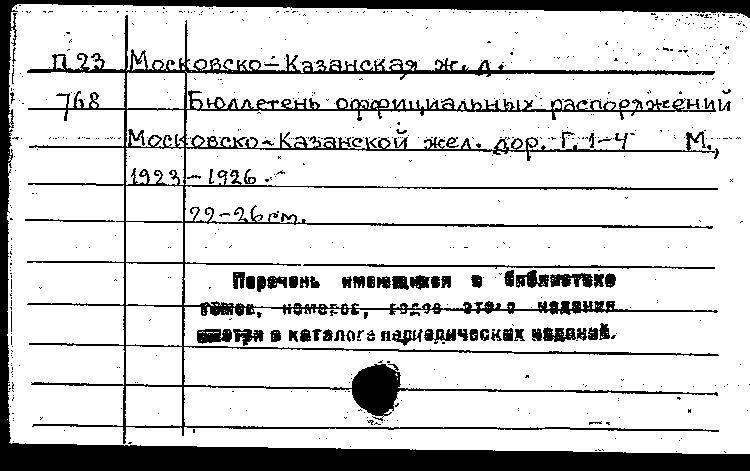 П 23 Московско-Казанская ж. д.
768 Бюллетень оффициальных распоряжений
Московско-Казанской жел. дор. Г. 1-4 М.,
1923-1926.
22-26 см.
Перечень имеющихся в библиотеке
томов, номеров, годов этого издания
смотри в каталоге периодических изданий.